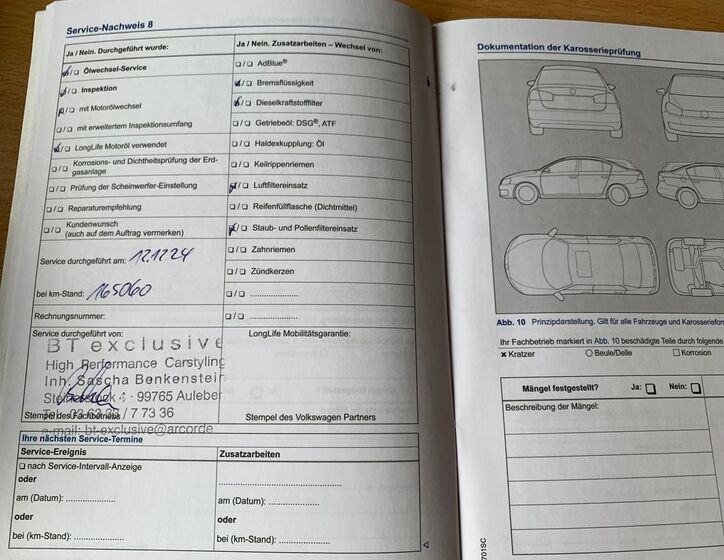 Service-Nachweis 8
Ja / Nein. Durchgeführt wurde:
Ölwechsel-Service
Inspektion
mit Motorölwechsel
mit erweitertem Inspektionsumfang
LongLife Motoröl verwendet
Korrosions- und Dichtheitsprüfung der Erd-
gasanlage
Prüfung der Scheinwerfer-Einstellung
Reparaturempfehlung
Kundenwunsch
(auch auf dem Auftrag vermerken)
Service durchgeführt am: 121224
bei km-Stand: 165060
Rechnungsnummer:
Service durchgeführt von:
BT exclusive
High Performance Carstyling
Inh. Sascha Benkenstein
4 · 99765 Auleben
/ 7 73 36
Stempel des Fachbetriebs
e-mail: bt-exclusive@arcor.de
Ja / Nein. Zusatzarbeiten – Wechsel von:
AdBlue®
Bremsflüssigkeit
Dieselkraftstofffilter
Getriebeöl: DSG®, ATF
Haldexkupplung: Öl
Keilrippenriemen
Luftfiltereinsatz
Reifenfüllflasche (Dichtmittel)
Staub- und Pollenfiltereinsatz
Zahnriemen
Zündkerzen
LongLife Mobilitätsgarantie:
Stempel des Volkswagen Partners
Ihre nächsten Service-Termine
Service-Ereignis
nach Service-Intervall-Anzeige
oder
am (Datum): ..................
oder
bei (km-Stand): ..................
Zusatzarbeiten
am (Datum): ..................
oder
bei (km-Stand): ..................
Dokumentation der Karosserieprüfung
Abb. 10 Prinzipdarstellung. Gilt für alle Fahrzeuge und Karosserieform
Ihr Fachbetrieb markiert in Abb. 10 beschädigte Teile durch folgende
x Kratzer O Beule/Delle Korrosion
Mängel festgestellt? Ja: Nein:
Beschreibung der Mängel:
701SC